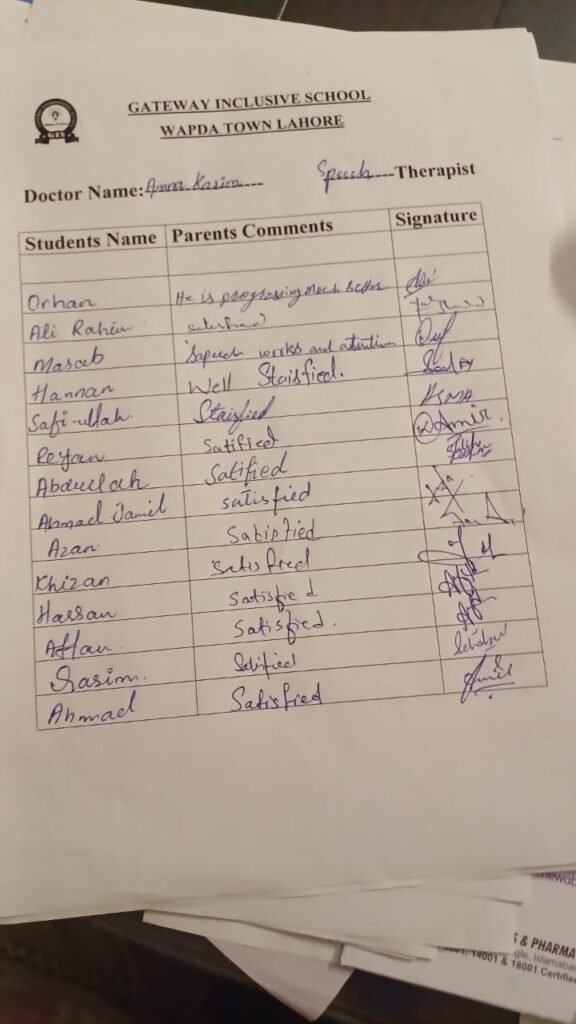 GATEWAY INCLUSIVE SCHOOL
WAPDA TOWN LAHORE
Doctor Name: Amna Kasim --- Speech ---Therapist
Students Name Parents Comments Signature
Orhan He is progressing much better
Ali Rahim satisfied
Masab Speech works and attention
Hannan Well Staisfied.
Safi-ullah. Staisfied ASMA
Reyan Satified Amir.
Abdullah Satified
Ahmad Jamil satisfied
Azan Satisfied
Khizan Satisfied
Hassan Satisfied
Affan Satisfied.
Qasim. Satified
Ahmad Satisfied
S & PHARMA
gle, Islamabad
14001 & 18001 Certified